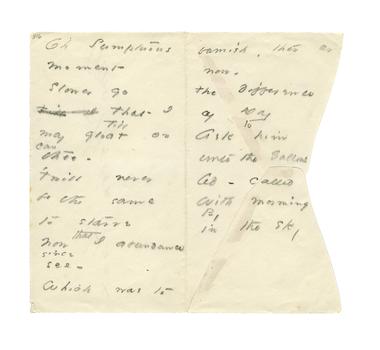 Oh Sumptuous
moment
Slower go
that I
till
may gloat on
can
thee -
'twill never
be the same
to starve
now I abundance
that
since
see -
Which was to
famish, then or
now -
the difference
of Day
to
Ask him
unto the Gallows
led - called
With morning
By
in the sky